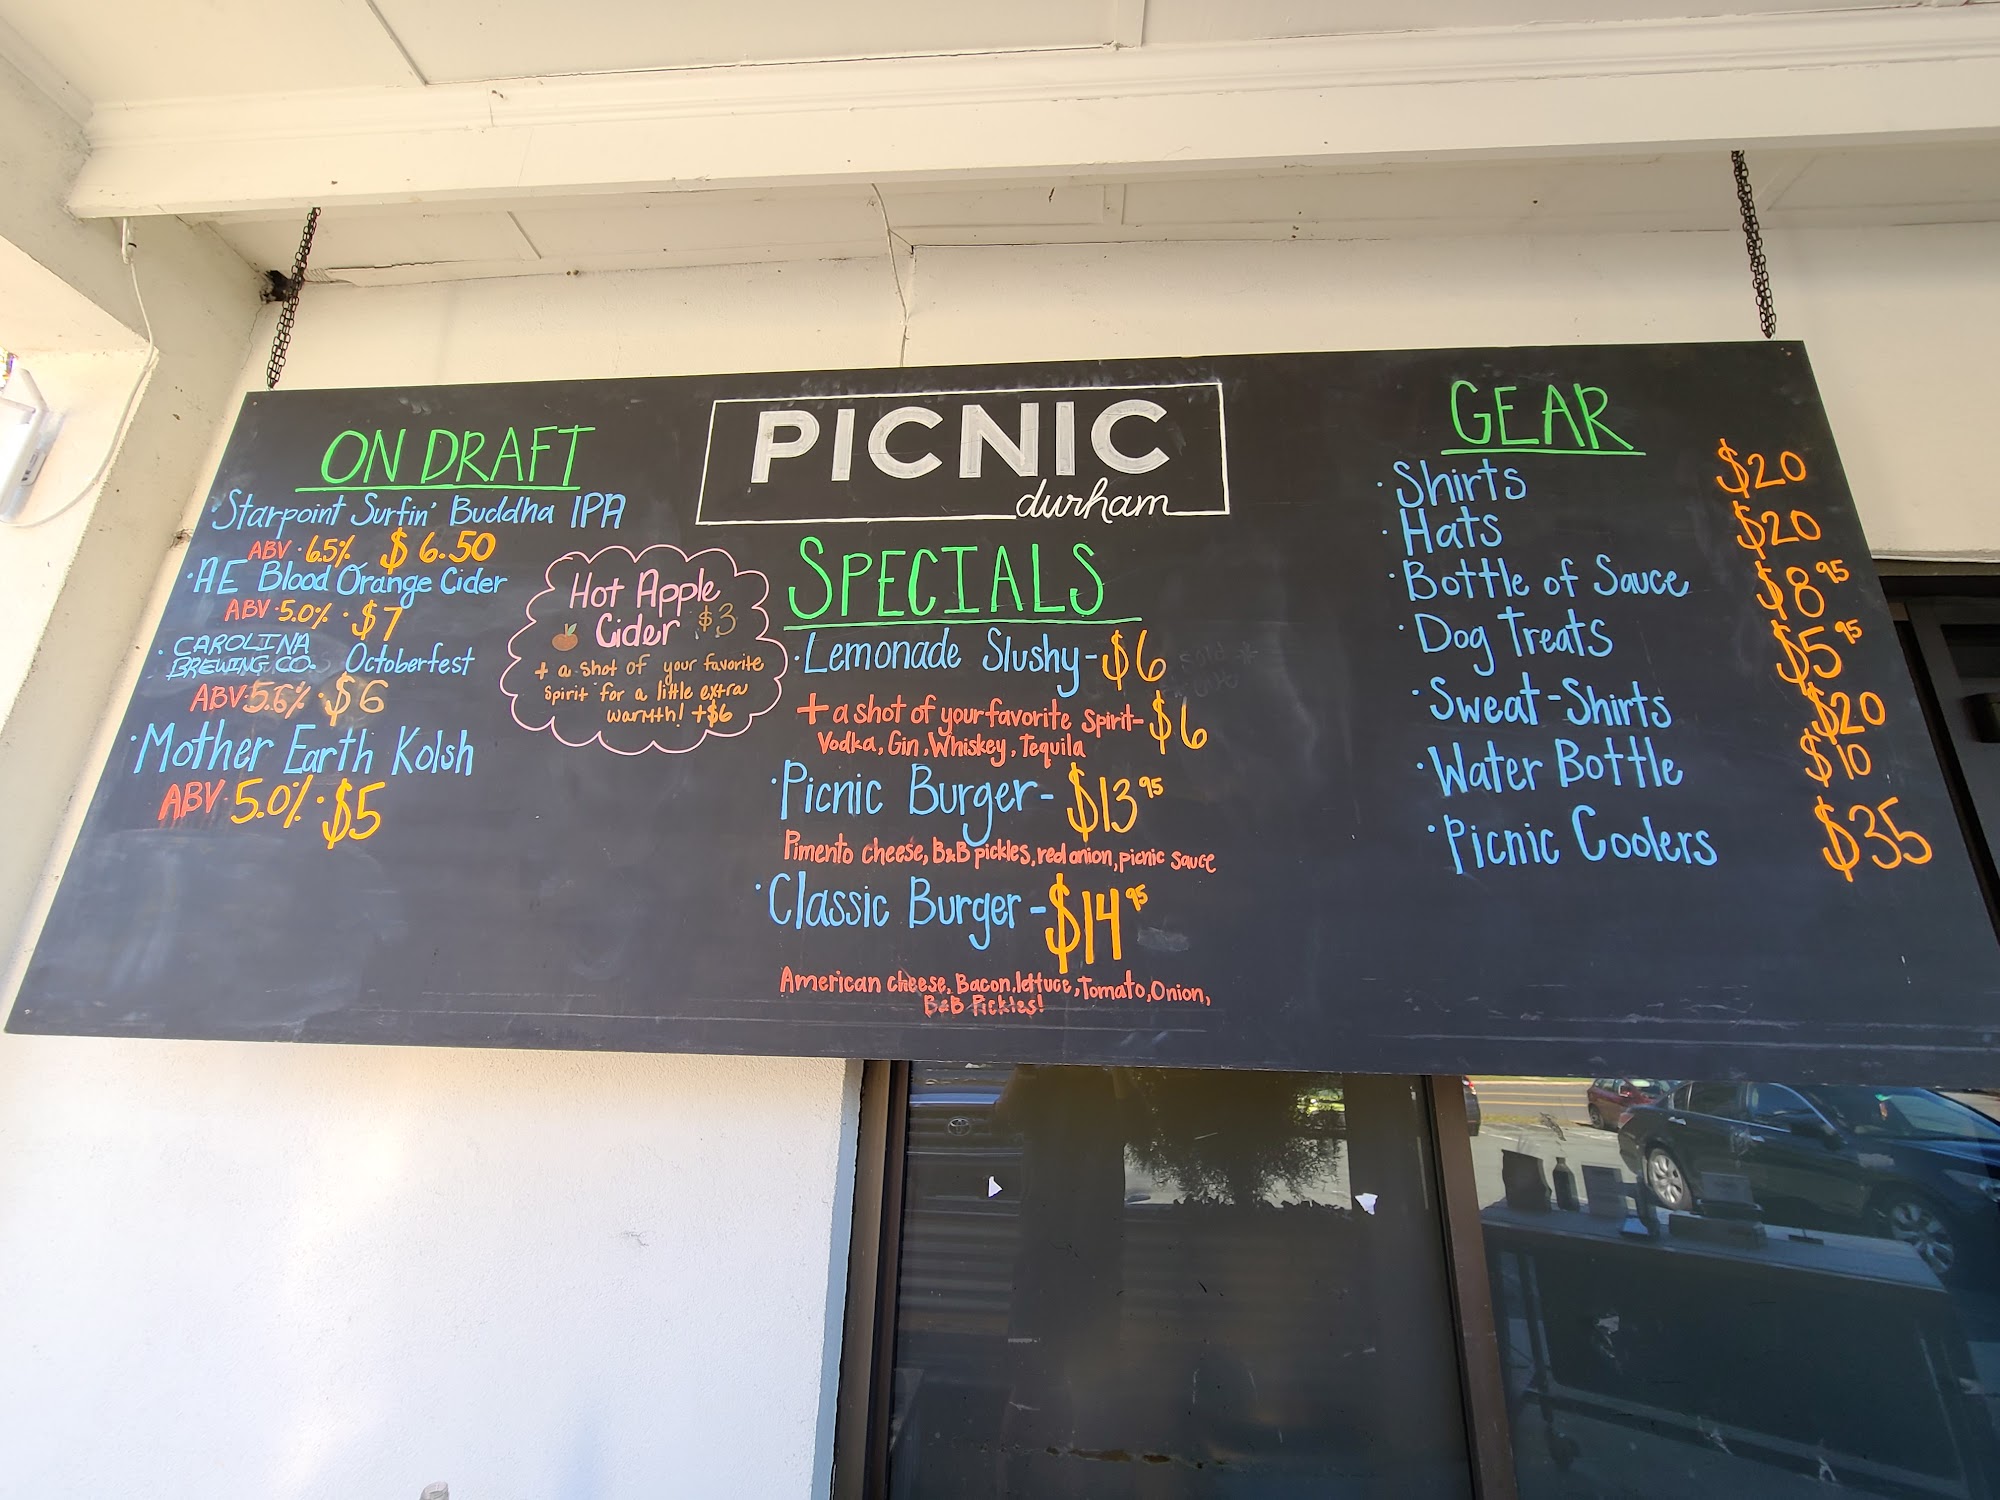 PICNIC
durham
ON DRAFT
· Starpoint Surfin' Buddha IPA
ABV · 6.5% $6.50
· AE Blood Orange Cider
ABV · 5.0% · $7
· CAROLINA
BREWING CO. Octoberfest
ABV · 5.6% · $6
· Mother Earth Kolsh
ABV · 5.0% · $5
Hot Apple
Cider $3
+ a shot of your favorite
spirit for a little extra
warmth! +$6
SPECIALS
· Lemonade Slushy - $6
+ a shot of your favorite spirit - $6
Vodka, Gin, Whiskey, Tequila
· Picnic Burger - $13.95
Pimento cheese, B&B pickles, red onion, picnic sauce
· Classic Burger - $14.95
American cheese, Bacon, lettuce, Tomato, Onion,
B&B Pickles!
GEAR
· Shirts $20
· Hats $20
· Bottle of Sauce $8.95
· Dog Treats $5.95
· Sweat-Shirts $20
· Water Bottle $10
· Picnic Coolers $35